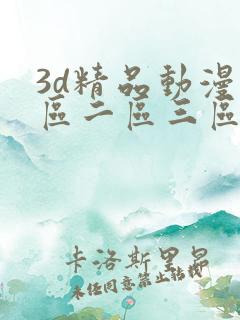 3d精品動漫
區二區三區
卡洛斯里昂
未任同意禁止轉載